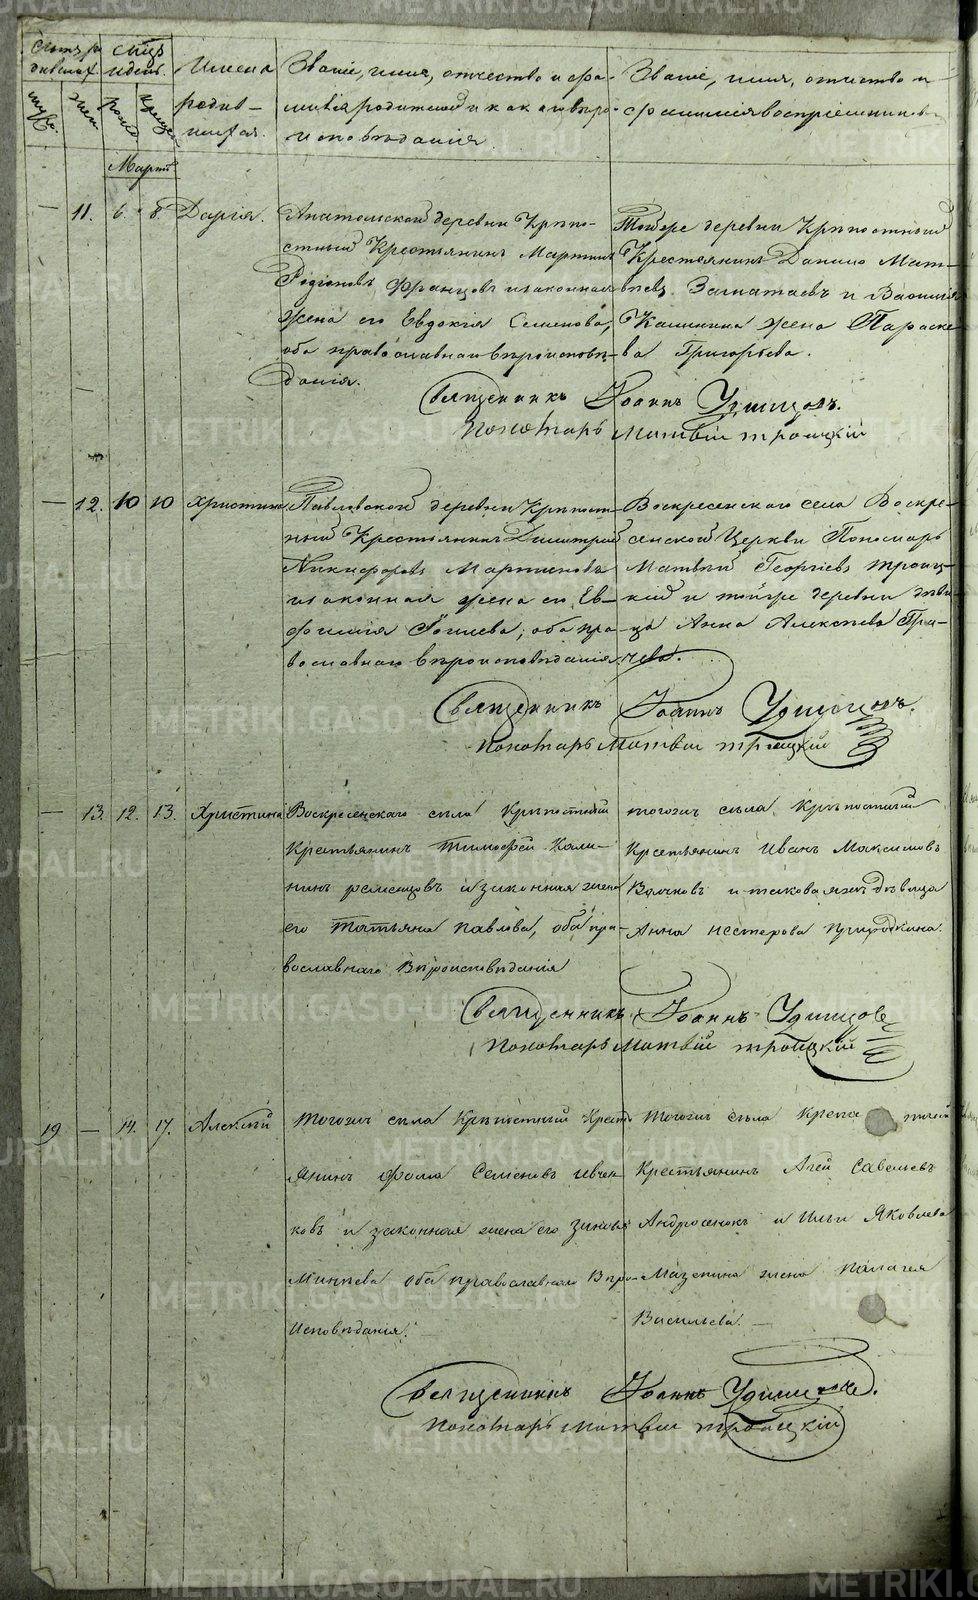 METRIKI.GASO-URAL.RU
Счетъ ро
дившихся
мѣсяцъ
и день.
Имена
родив-
шихся.
Званіе, имя, отчество и фа-
милія родителей и какого вѣро-
исповѣданія.
Званіе, имя, отчество и
фамилія воспріемниковъ
муж.
жен.
рожд.
крещен.
Мартъ
— 11. 6. 8. Дарія.
Анатольской деревни Крѣпо-
стный Крестьянинъ Мартинъ
Родіоновъ Французовъ и законная
жена его Евдокія Семенова,
оба православнаго вѣроисповѣ-
данія.
Тойже деревни Крѣпостный
Крестьянинъ Данило Мат-
вѣевъ и Василія
Калинина жена Параске
ва Григорьева.
Священникъ Іоаннъ Удинцовъ.
Пономарь Матвій Троицкій
— 12. 10 10 Христина
Павловской деревни Крѣпост-
ный Крестьянинъ Димитрій
Никифоровъ Мартиновъ
и законная жена его Ев-
фимія; оба пра-
вославнаго вѣроисповѣданія
Воскресенскаго села Воскре-
сенской Церкви Пономарь
Матвѣй Георгіевъ Троиц-
кій и тойже деревни дѣви-
ца Анна Алексѣева Гра-
чева.
Священникъ Іоаннъ Удинцовъ.
Пономарь Матвій Троицкій
— 13. 12. 13. Христина
Воскресенскаго села Крѣпостной
Крестьянинъ Тимофей Кали-
нинъ и законная жена
его Татьяна Павлова, оба пра-
вославнаго Вѣроисповѣданія
тогожъ села Крѣпостный
Крестьянинъ Иванъ Максимовъ
Волчковъ и таковая жъ дѣвица
Анна Нестерова
Священникъ Іоаннъ Удинцовъ
Пономарь Матвій Троицкій
19 — 14. 17. Алексѣй
Тогожъ села Крѣпостный Крест
янинъ Фома Семеновъ Шевчен
ковъ и законная жена его Зиновья
Минѣева оба православнаго Вѣро-
Исповѣданія.
Тогожъ села Крепостной
Крестьянинъ Агей Савельевъ
Андросенокъ и Ильи Яковлева
Мазепина жена Палагея
Васильева. —
Священникъ Іоаннъ Удинцовъ.
Пономарь Матвій Троицкій